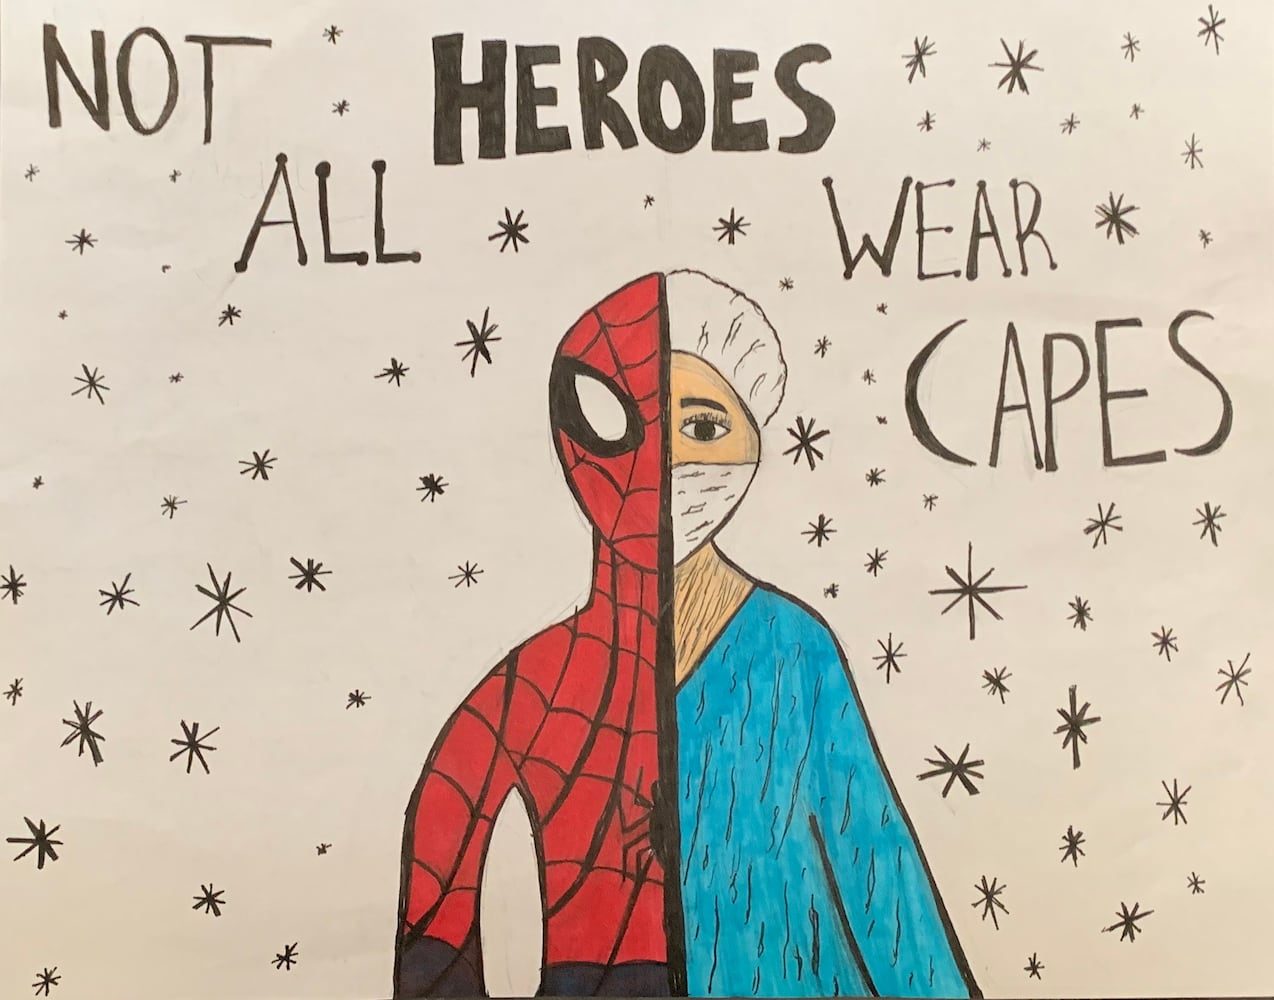 NOT
ALL
HEROES
WEAR
CAPES